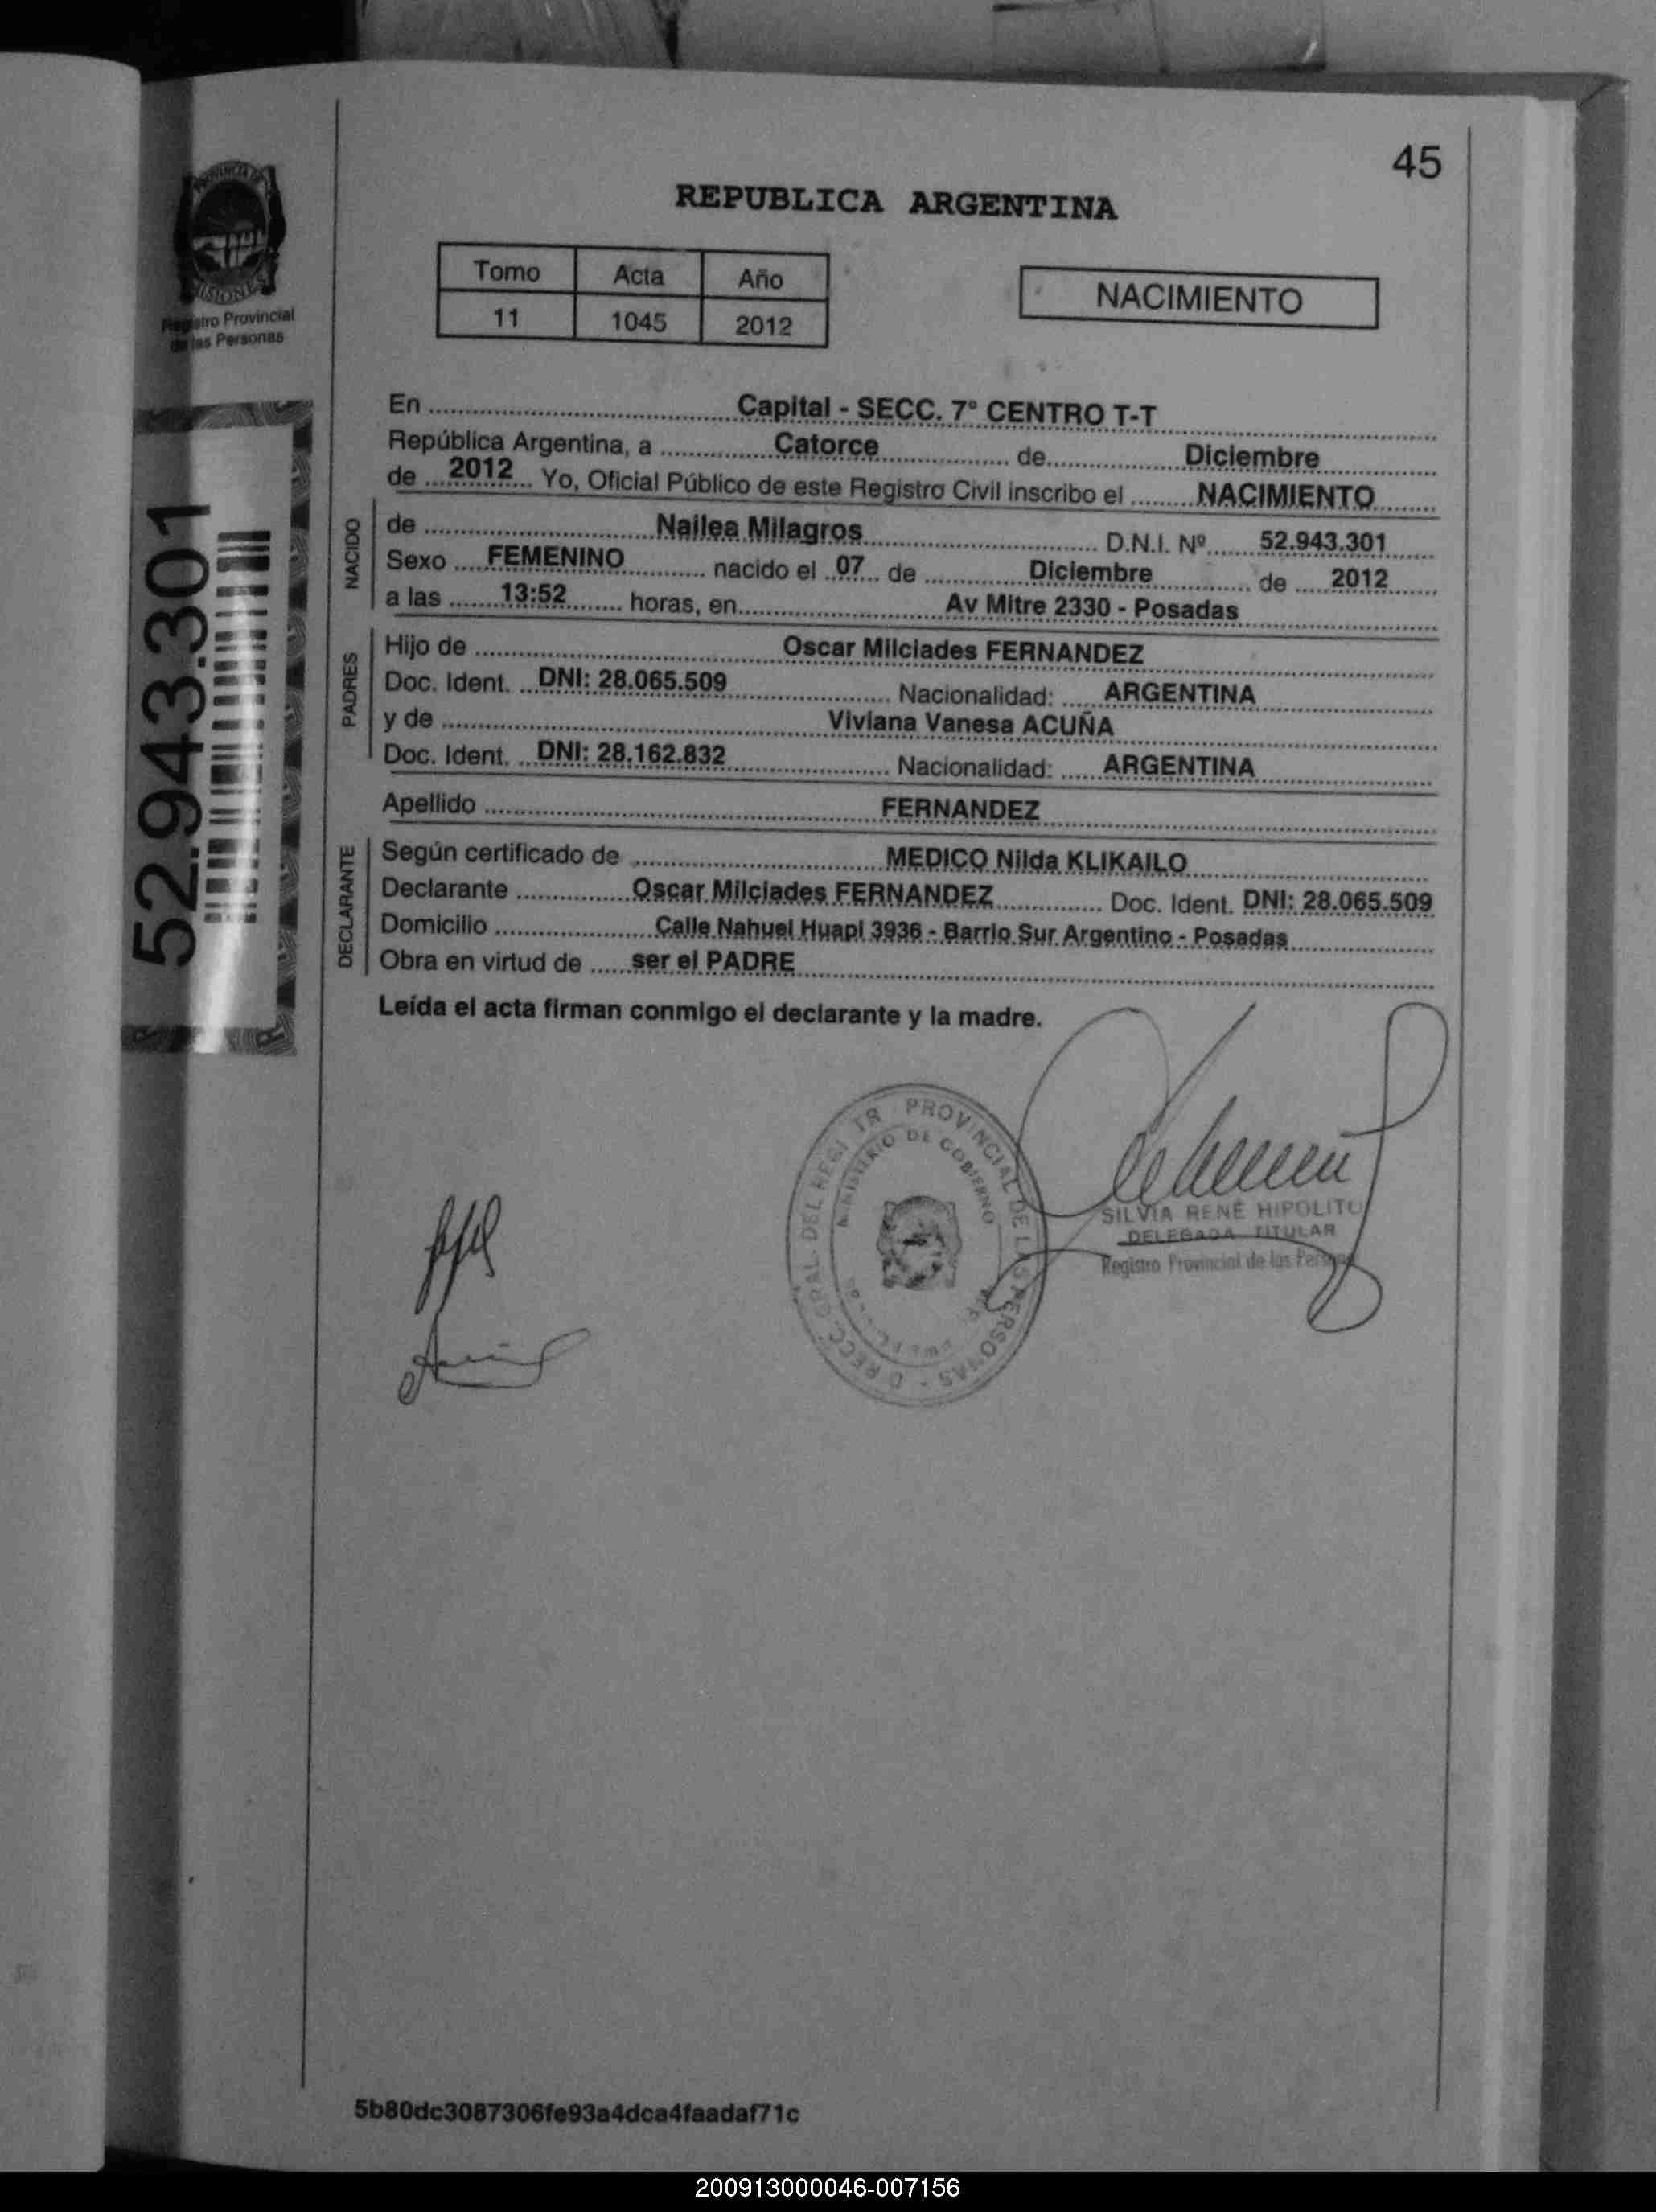 45
PROVINCIA DE
MISIONES
Registro Provincial
de las Personas
REPUBLICA ARGENTINA
Tomo Acta Año
11 1045 2012
NACIMIENTO
52.943.301
En Capital - SECC. 7° CENTRO T-T
República Argentina, a Catorce de Diciembre
de 2012 Yo, Oficial Público de este Registro Civil inscribo el NACIMIENTO
NACIDO
de Nailea Milagros D.N.I. Nº 52.943.301
Sexo FEMENINO nacido el 07 de Diciembre de 2012
a las 13:52 horas, en Av Mitre 2330 - Posadas
PADRES
Hijo de Oscar Milciades FERNANDEZ
Doc. Ident. DNI: 28.065.509 Nacionalidad: ARGENTINA
y de Viviana Vanesa ACUÑA
Doc. Ident. DNI: 28.162.832 Nacionalidad: ARGENTINA
Apellido FERNANDEZ
DECLARANTE
Según certificado de MEDICO Nilda KLIKAILO
Declarante Oscar Milciades FERNANDEZ Doc. Ident. DNI: 28.065.509
Domicilio Calle Nahuel Huapi 3936 - Barrio Sur Argentino - Posadas
Obra en virtud de ser el PADRE
Leída el acta firman conmigo el declarante y la madre.
PROVINCIAL DE LAS PERSONAS
MINISTERIO DE GOBIERNO
SILVIA RENÉ HIPOLITO
DELEGADA TITULAR
Registro Provincial de las Personas
5b80dc3087306fe93a4dca4faadaf71c
200913000046-007156